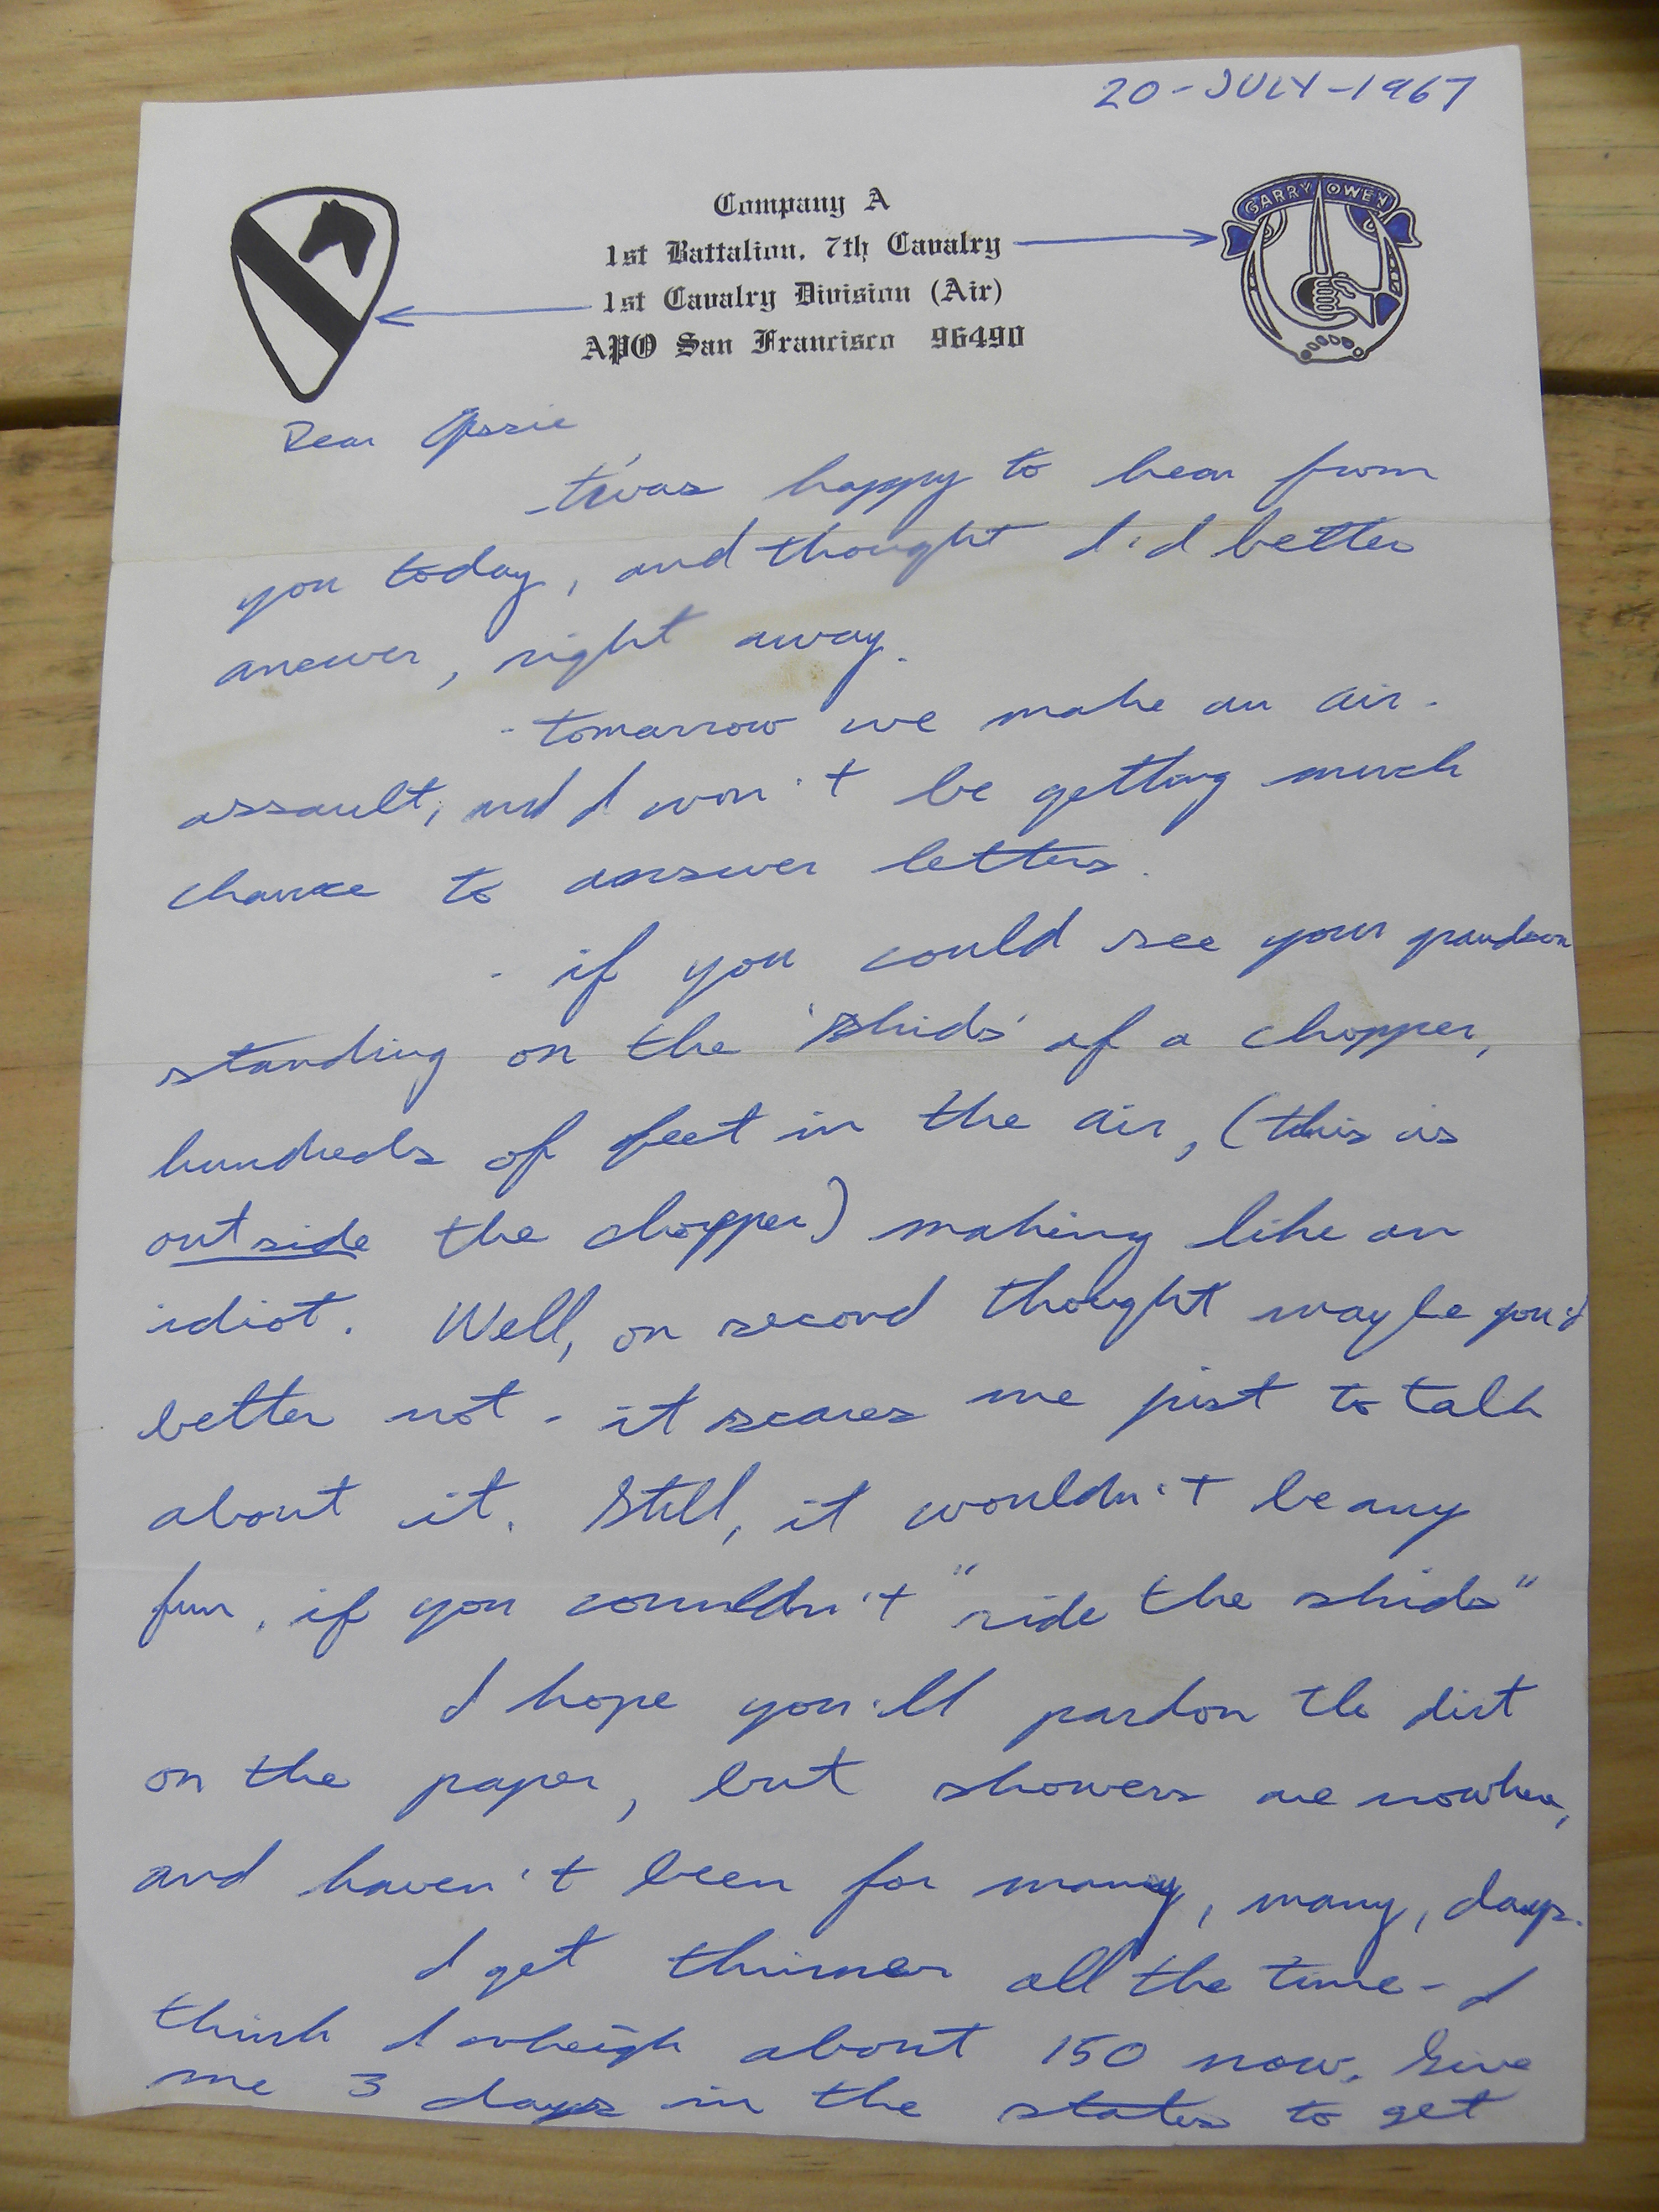 20-JULY-1967
GARRY OWEN
Company A
1st Battalion, 7th Cavalry
1st Cavalry Division (Air)
APO San Francisco 96490
Dear
- t'was happy to hear from
you today, and thought I'd better
answer, right away.
- tomorrow we make an air-
assault, and I won't be getting much
chance to answer letters.
- if you could see your grandson
standing on the 'skids' of a chopper,
hundreds of feet in the air, (this is
outside the chopper) making like an
idiot. Well, on second thought maybe you'd
better not - it scares me just to talk
about it. Still, it wouldn't be any
fun, if you couldn't "ride the skids"
I hope you'll pardon the dirt
on the paper, but showers are nowhere,
and haven't been for many, many, days.
I get thinner all the time - I
think I wheigh about 150 now. Give
me 3 days in the states to get